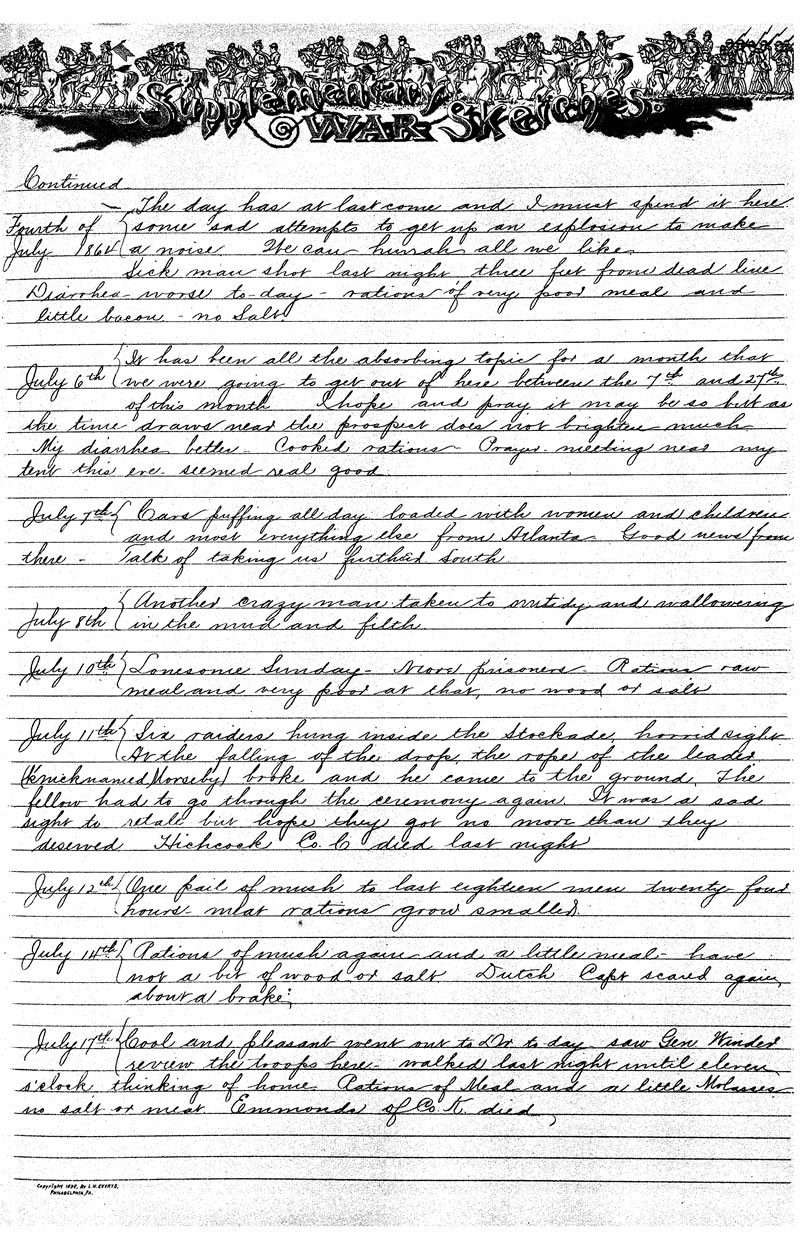 Supplementary
WAR Sketches.
Continued
— The day has at last come and I must spend it here
Fourth of { some sad attempts to get up an explosion to make
July 1864 { a noise. We can hurrah all we like.
Sick man shot last night three feet from dead line
Diarrhea worse to-day - rations of very poor meal and
little bacon - no Salt.
It has been all the absorbing topic for a month that
July 6th { we were going to get out of here between the 7th and 27th
of this month I hope and pray it may be so but as
the time draws near the prospect does not brighten much
My diarrhea better - Cooked rations - Prayer meeting near my
tent this eve. seemed real good
July 7th { Cars puffing all day loaded with women and children
and most everything else from Atlanta - Good news from
there - Talk of taking us further South
{ Another crazy man taken to and wallowering
July 8th { in the mud and filth.
July 10th { Lonesome Sunday - More prisoners - Rations raw
meal and very poor at that, no wood or salt
July 11th { Six raiders hung inside the Stockade, horrid sight
At the falling of the drop, the rope of the leader
(Knicknamed Morseby) broke and he came to the ground. The
fellow had to go through the ceremony again. It was a sad
sight to retale but hope they got no more than they
deserved Hichcock Co. C died last night
July 12th { One pail of mush to last eighteen men twenty-four
hours - meat rations grow smaller.
July 14th { Rations of mush again and a little meal - have
not a bit of wood or salt Dutch Capt scared again,
about a brake;
July 17th { Cool and pleasant went out to Dr to day saw Gen Winder
review the troops here - walked last night until eleven
o'clock thinking of home Rations of Meal and a little Molasses
no salt or meat Emmonds of Co. K. died,
Copyright 1890, By L.H. EVERTS,
PHILADELPHIA, PA.